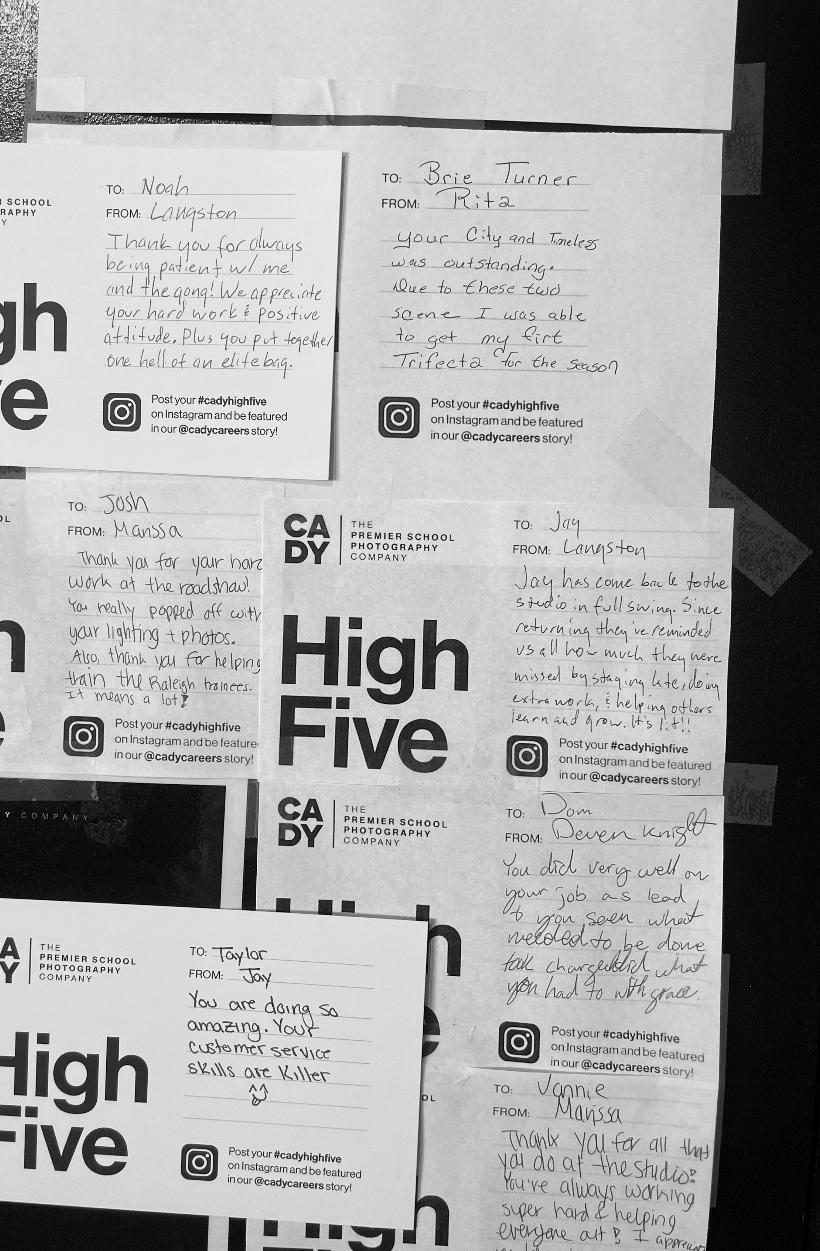 R SCHOOL
RAPHY
Y
gh
e
TO: Noah
FROM: Langston
Thank you for always
being patient w/ me
and the gang! We appreciate
your hard work & positive
attitude. Plus you put together
one hell of an elite bag.
Post your #cadyhighfive
on Instagram and be featured
in our @cadycareers story!
TO: Brie Turner
FROM: Rita
your City and Timeless
was outstanding.
Due to these two
scene I was able
to get my firt
Trifecta for the season
Post your #cadyhighfive
on Instagram and be featured
in our @cadycareers story!
OL
TO: Josh
FROM: Marissa
Thank you for your hard
work at the roadshow!
You really popped off with
your lighting + photos.
Also, thank you for helping
train the Raleigh trainees.
It means a lot!
Post your #cadyhighfive
on Instagram and be feature
in our @cadycareers story!
CA
DY
THE
PREMIER SCHOOL
PHOTOGRAPHY
COMPANY
High
Five
TO: Jay
FROM: Langston
Jay has come back to the
studio in full swing. Since
returning they've reminded
us all how much they were
missed by staying late, doing
extra work, & helping others
learn and grow. It's lit!!
Post your #cadyhighfive
on Instagram and be featured
in our @cadycareers story!
Y COMPANY
CA
DY
THE
PREMIER SCHOOL
PHOTOGRAPHY
COMPANY
TO: Dom
FROM: Deven Knight
You did very well on
your job as lead
to you seen what
needed to be done
took charge did what
you had to with grace.
Post your #cadyhighfive
on Instagram and be featured
in our @cadycareers story!
A
Y
THE
PREMIER SCHOOL
PHOTOGRAPHY
COMPANY
High
Five
TO: Taylor
FROM: Jay
You are doing so
amazing. Your
customer service
skills are killer
Post your #cadyhighfive
on Instagram and be featured
in our @cadycareers story!
OL
High
TO: Vannie
FROM: Marissa
Thank you for all that
you do at the studio!
You're always working
super hard & helping
everyone out! I